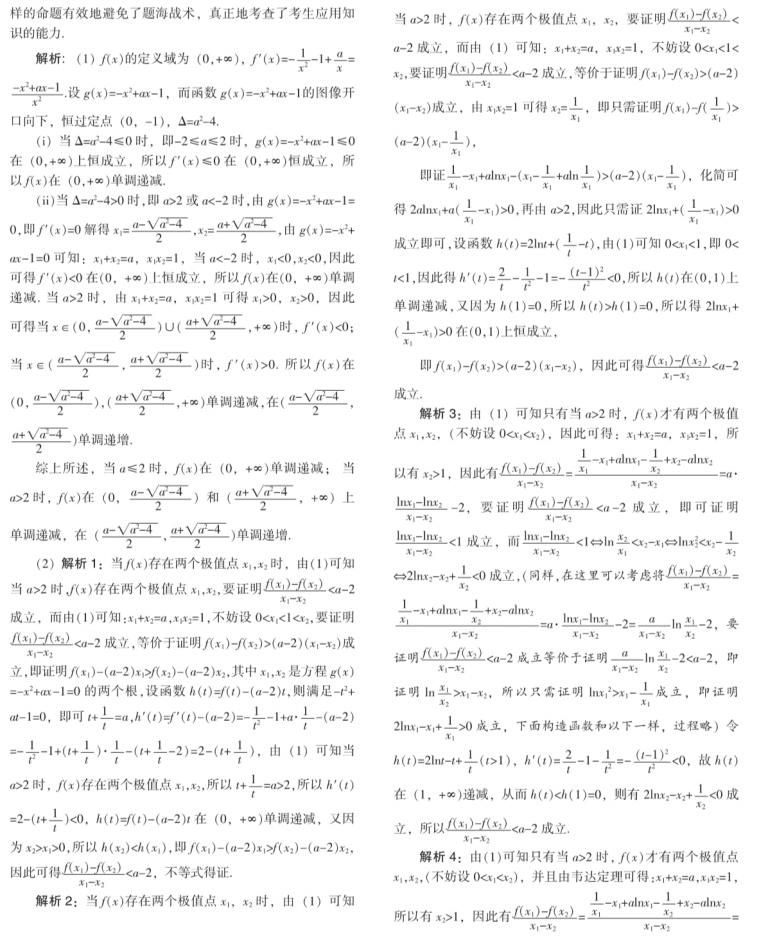 样的命题有效地避免了题海战术，真正地考查了考生应用知
识的能力.
解析：(1) f(x)的定义域为 (0,+∞)，f′(x)=-1/x²-1+a/x=
(-x²+ax-1)/x².设 g(x)=-x²+ax-1，而函数 g(x)=-x²+ax-1的图像开
口向下，恒过定点 (0，-1)，Δ=a²-4.
(i) 当 Δ=a²-4≤0 时，即-2≤a≤2 时，g(x)=-x²+ax-1≤0
在 (0,+∞)上恒成立，所以 f′(x)≤0 在 (0,+∞)恒成立，所
以 f(x)在 (0,+∞)单调递减.
(ii)当 Δ=a²-4>0 时,即 a>2 或 a<-2 时,由 g(x)=-x²+ax-1=
0,即 f′(x)=0 解得 x₁=(a-√(a²-4))/2,x₂=(a+√(a²-4))/2,由 g(x)=-x²+
ax-1=0 可知：x₁+x₂=a，x₁x₂=1，当 a<-2 时，x₁<0,x₂<0,因此
可得 f′(x)<0 在(0，+∞)上恒成立，所以 f(x)在(0，+∞)单调
递减. 当 a>2 时，由 x₁+x₂=a，x₁x₂=1 可得 x₁>0，x₂>0，因此
可得当 x∈(0,(a-√(a²-4))/2)∪((a+√(a²-4))/2,+∞)时，f′(x)<0;
当 x∈((a-√(a²-4))/2，(a+√(a²-4))/2)时，f′(x)>0. 所以 f(x)在
(0,(a-√(a²-4))/2),((a+√(a²-4))/2,+∞)单调递减,在((a-√(a²-4))/2，
(a+√(a²-4))/2)单调递增.
综上所述，当 a≤2 时，f(x)在 (0，+∞)单调递减；当
a>2 时，f(x)在 (0，(a-√(a²-4))/2) 和 ((a+√(a²-4))/2，+∞) 上
单调递减，在 ((a-√(a²-4))/2,(a+√(a²-4))/2)单调递增.
(2) 解析 1：当 f(x)存在两个极值点 x₁,x₂ 时，由(1)可知
当 a>2 时,f(x)存在两个极值点 x₁,x₂,要证明(f(x₁)-f(x₂))/(x₁-x₂)<a-2
成立，而由(1)可知:x₁+x₂=a,x₁x₂=1,不妨设 0<x₁<1<x₂,要证明
(f(x₁)-f(x₂))/(x₁-x₂)<a-2 成立,等价于证明 f(x₁)-f(x₂)>(a-2)(x₁-x₂)成
立,即证明 f(x₁)-(a-2)x₁>f(x₂)-(a-2)x₂,其中 x₁,x₂ 是方程 g(x)
=-x²+ax-1=0 的两个根,设函数 h(t)=f(t)-(a-2)t,则满足-t²+
at-1=0，即可 t+1/t=a,h′(t)=f′(t)-(a-2)=-1/t²-1+a·1/t-(a-2)
=-1/t²-1+(t+1/t)·1/t-(t+1/t-2)=2-(t+1/t)，由 (1) 可知当
a>2 时，f(x)存在两个极值点 x₁,x₂,所以 t+1/t=a>2,所以 h′(t)
=2-(t+1/t)<0，h(t)=f(t)-(a-2)t 在 (0，+∞)单调递减，又因
为 x₂>x₁>0,所以 h(x₂)<h(x₁),即 f(x₁)-(a-2)x₁>f(x₂)-(a-2)x₂,
因此可得(f(x₁)-f(x₂))/(x₁-x₂)<a-2，不等式得证.
解析 2：当 f(x)存在两个极值点 x₁，x₂ 时，由 (1) 可知
当 a>2 时，f(x)存在两个极值点 x₁，x₂，要证明(f(x₁)-f(x₂))/(x₁-x₂)<
a-2 成立，而由 (1) 可知：x₁+x₂=a，x₁x₂=1，不妨设 0<x₁<1<
x₂,要证明(f(x₁)-f(x₂))/(x₁-x₂)<a-2 成立,等价于证明 f(x₁)-f(x₂)>(a-2)
(x₁-x₂)成立，由 x₁x₂=1 可得 x₂=1/x₁，即只需证明 f(x₁)-f(1/x₁)>
(a-2)(x₁-1/x₁)，
即证1/x₁-x₁+alnx₁-(x₁-1/x₁+aln1/x₁)>(a-2)(x₁-1/x₁)，化简可
得 2alnx₁+a(1/x₁-x₁)>0,再由 a>2,因此只需证 2lnx₁+(1/x₁-x₁)>0
成立即可,设函数 h(t)=2lnt+(1/t-t),由(1)可知 0<x₁<1,即 0<
t<1,因此得 h′(t)=2/t-1/t²-1=-(t-1)²/t²<0,所以 h(t)在(0,1)上
单调递减,又因为 h(1)=0,所以 h(t)>h(1)=0,所以得 2lnx₁+
(1/x₁-x₁)>0 在(0,1)上恒成立，
即 f(x₁)-f(x₂)>(a-2)(x₁-x₂)，因此可得(f(x₁)-f(x₂))/(x₁-x₂)<a-2
成立.
解析 3：由 (1) 可知只有当 a>2 时，f(x)才有两个极值
点 x₁,x₂，(不妨设 0<x₁<x₂)，因此可得：x₁+x₂=a，x₁x₂=1，所
以有 x₂>1，因此有(f(x₁)-f(x₂))/(x₁-x₂)=(1/x₁-x₁+alnx₁-1/x₂+x₂-alnx₂)/(x₁-x₂)=a·
(lnx₁-lnx₂)/(x₁-x₂)-2，要证明(f(x₁)-f(x₂))/(x₁-x₂)<a-2 成立，即可证明
(lnx₁-lnx₂)/(x₁-x₂)<1 成立，而(lnx₁-lnx₂)/(x₁-x₂)<1⇔ln x₂/x₁<x₂-x₁⇔lnx₂²<x₂-1/x₂
⇔2lnx₂-x₂+1/x₂<0 成立,(同样,在这里可以考虑将(f(x₁)-f(x₂))/(x₁-x₂)=
(1/x₁-x₁+alnx₁-1/x₂+x₂-alnx₂)/(x₁-x₂)=a·(lnx₁-lnx₂)/(x₁-x₂)-2=a/(x₁-x₂) ln x₁/x₂-2，要
证明(f(x₁)-f(x₂))/(x₁-x₂)<a-2 成立等价于证明a/(x₁-x₂) ln x₁/x₂-2<a-2，即
证明 ln x₁/x₂>x₁-x₂，所以只需证明 lnx₁²>x₁-1/x₁成立，即证明
2lnx₁-x₁+1/x₁>0 成立，下面构造函数和以下一样，过程略) 令
h(t)=2lnt-t+1/t(t>1)，h′(t)=2/t-1-1/t²=-(t-1)²/t²<0，故 h(t)
在 (1，+∞)递减，从而 h(t)<h(1)=0，则有 2lnx₂-x₂+1/x₂<0 成
立，所以(f(x₁)-f(x₂))/(x₁-x₂)<a-2 成立.
解析 4：由(1)可知只有当 a>2 时，f(x)才有两个极值点
x₁,x₂,(不妨设 0<x₁<x₂)，并且由韦达定理可得:x₁+x₂=a,x₁x₂=1,
所以有 x₂>1，因此有(f(x₁)-f(x₂))/(x₁-x₂)=(1/x₁-x₁+alnx₁-1/x₂+x₂-alnx₂)/(x₁-x₂)=